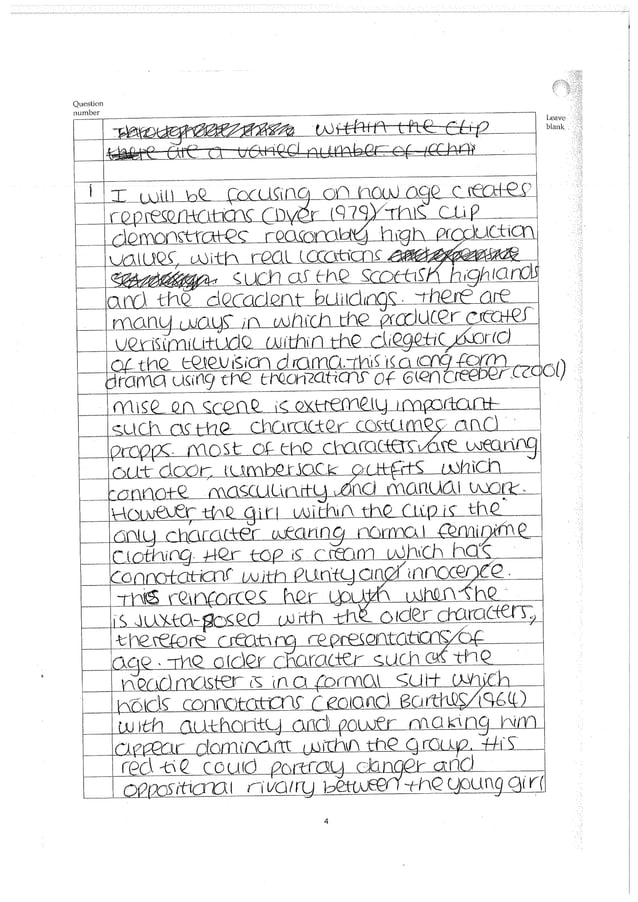 Question
number
Leave
blank
within the clip
there are a varied number of techni
1 I will be focusing on how age creates
representations (Dyer 1979) This clip
demonstrates reasonably high production
values, with real locations
such as the scottish highlands
and the decadent buildings. There are
many ways in which the producer creates
verisimilitude within the diegetic world
of the television drama. This is a long form
drama using the theorizations of Glen Creeber (2001)
mise en scene is extremely important
such as the character costumes and
propps. most of the characters, are wearing
out door, lumberjack outfits which
connote masculinity and manual work.
However, the girl within the clip is the
only character wearing normal feminime
clothing. Her top is cream which has
connotations with purity and innocence.
This reinforces her youth when she
is juxta-posed with the older characters,
therefore creating representations of
age. The older character such as the
headmaster is in a formal suit which
holds connotations (Roland Barthes 1964)
with authority and power making him
appear dominant within the group. His
red tie could portray danger and
oppositional rivalry between the young girl
4